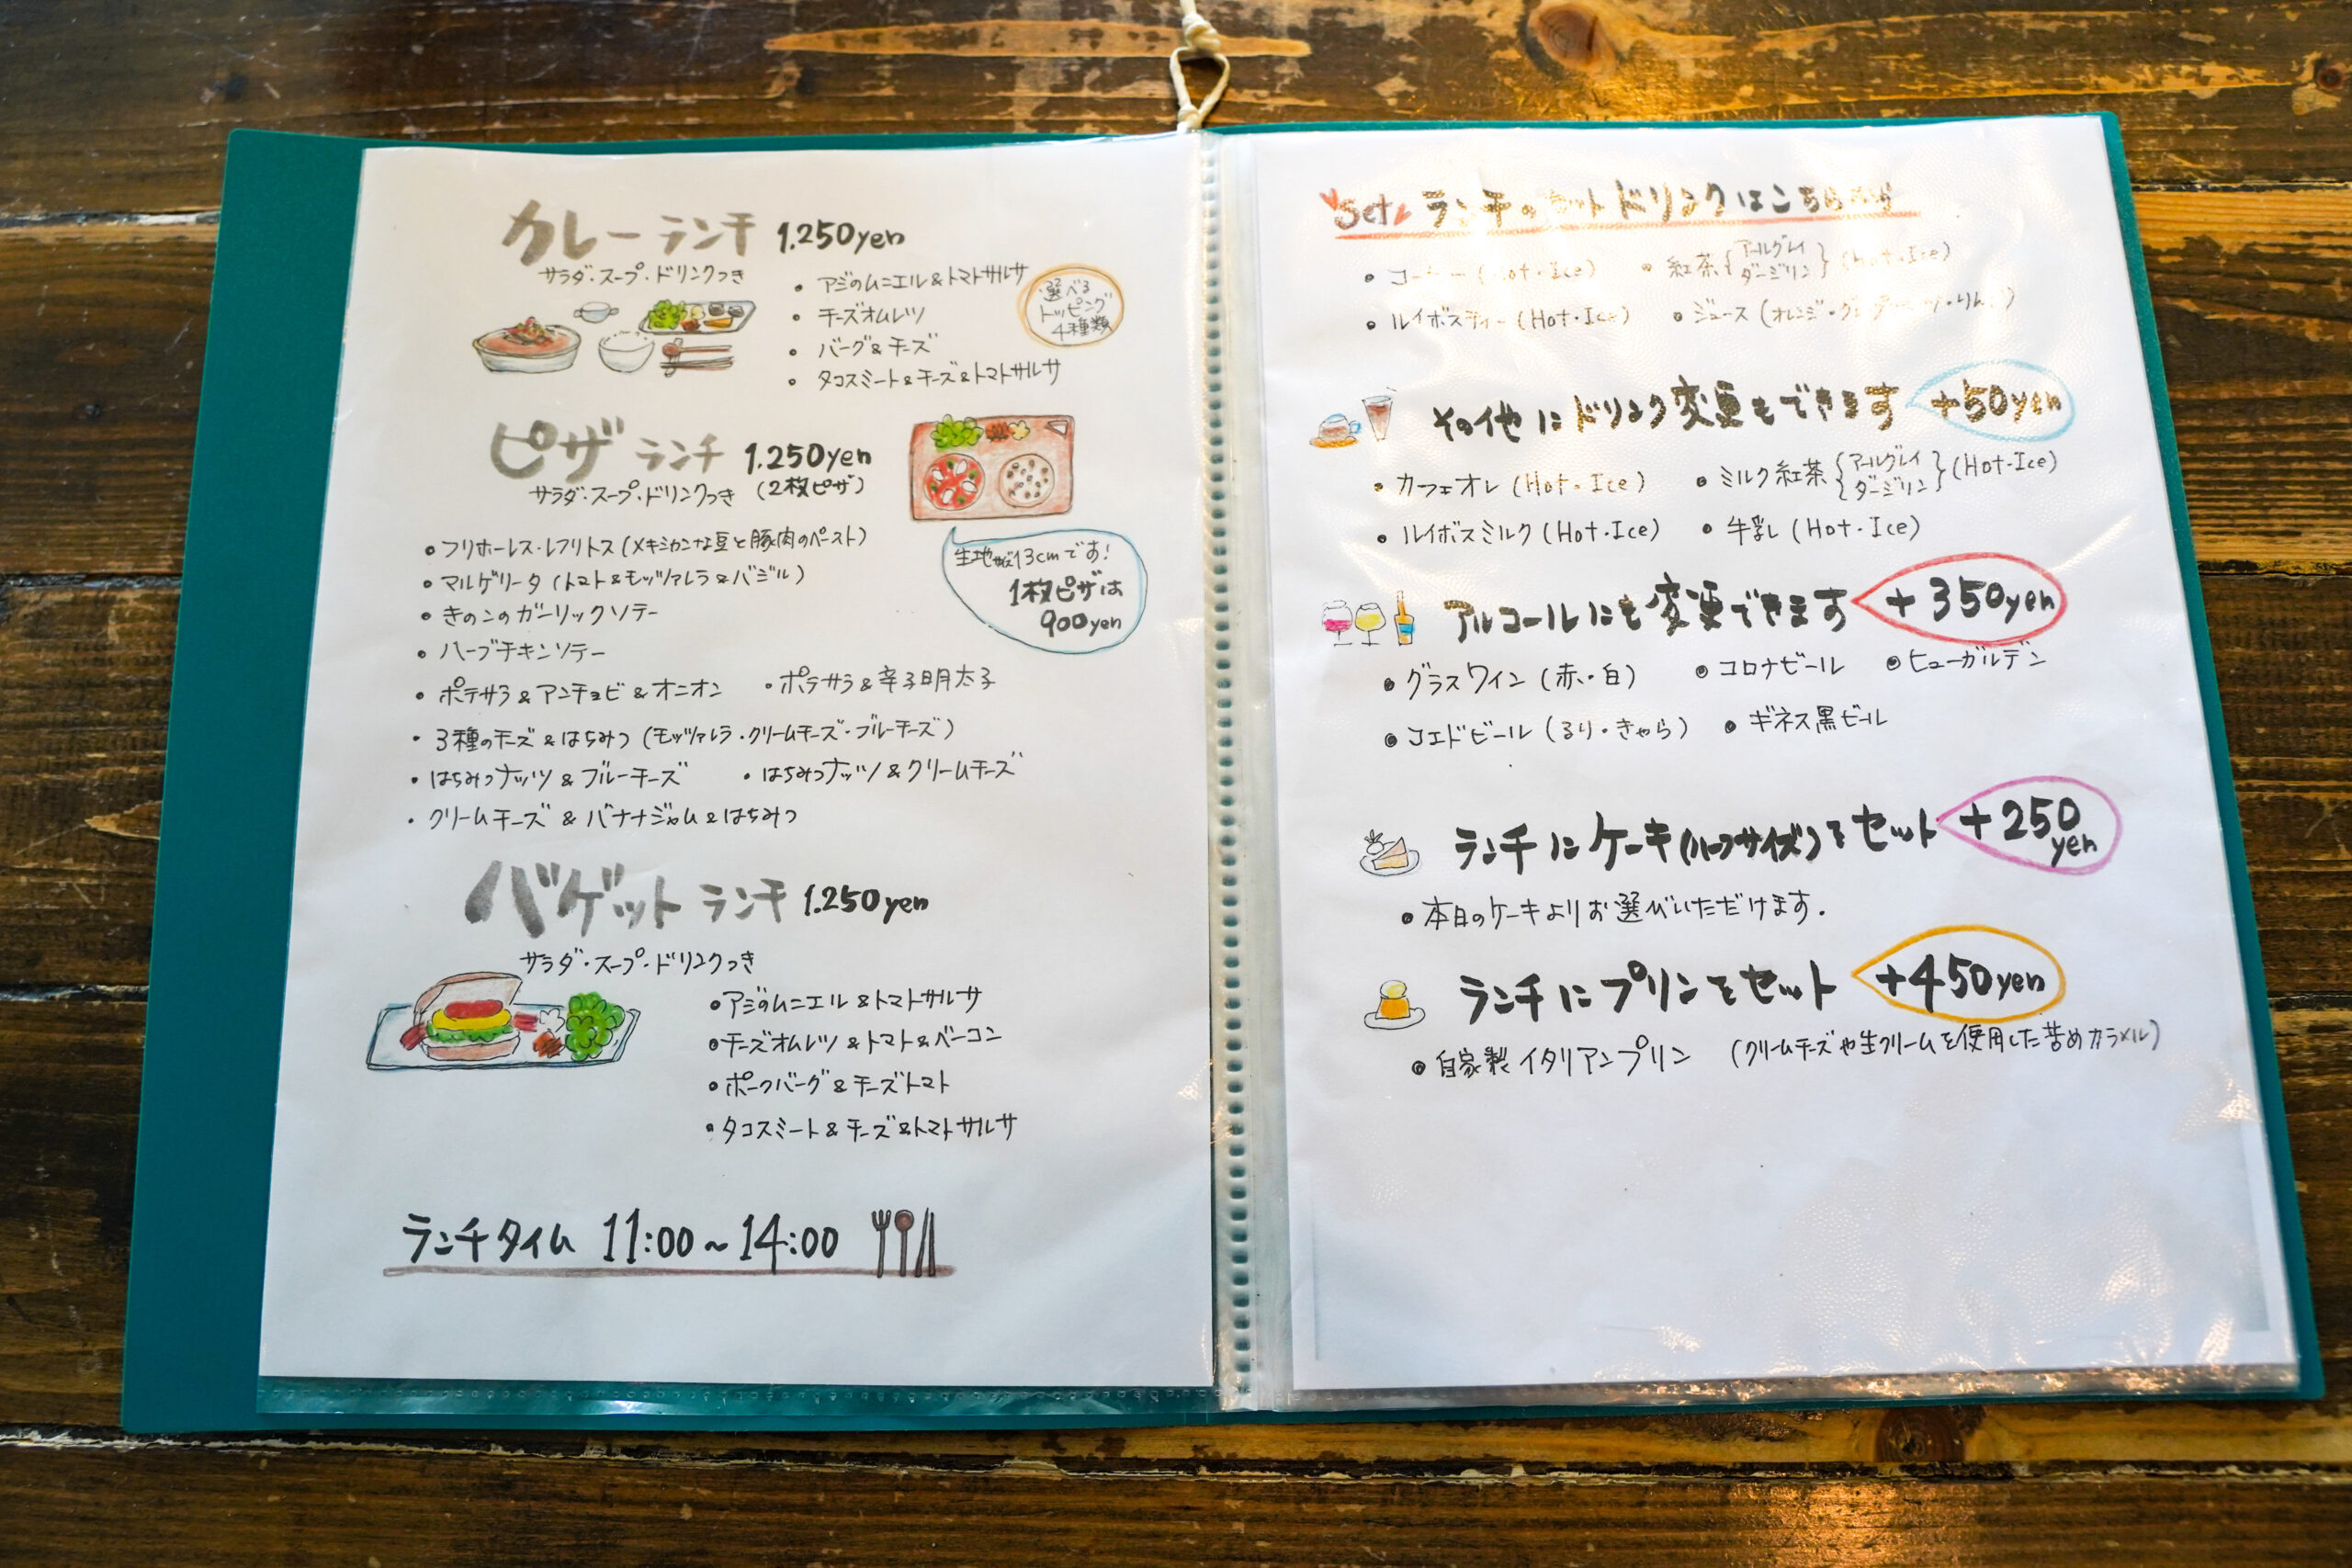 カレーランチ 1.250yen
サラダ・スープ・ドリンクつき
・アジのムニエル&トマトサルサ
・チーズオムレツ
・バーグ&チーズ
・タコスミート&チーズ&トマトサルサ
選べる
トッピング
4種類
ピザランチ 1.250yen
サラダ・スープ・ドリンクつき (2枚ピザ)
・フリホーレス・レフリトス(メキシカンな豆と豚肉のペースト)
・マルゲリータ(トマト&モッツァレラ&バジル)
・きのこのガーリックソテー
・ハーブチキンソテー
・ポテサラ&アンチョビ&オニオン ・ポテサラ&辛子明太子
・3種のチーズ&はちみつ(モッツァレラ・クリームチーズ・ブルーチーズ)
・はちみつナッツ&ブルーチーズ ・はちみつナッツ&クリームチーズ
・クリームチーズ&バナナジャム&はちみつ
生地が13cmです!
1枚ピザは
900yen
バゲットランチ 1.250yen
サラダ・スープ・ドリンクつき
・アジのムニエル&トマトサルサ
・チーズオムレツ&トマト&ベーコン
・ポークバーグ&チーズトマト
・タコスミート&チーズ&トマトサルサ
ランチタイム 11:00~14:00
Set ランチのセットドリンクはこちらから
・コーヒー(Hot・Ice) ・紅茶{アールグレイ ダージリン}(Hot・Ice)
・ルイボスティー(Hot・Ice) ・ジュース(オレンジ・グレープフルーツ・りんご)
その他にドリンク変更もできます +50yen
・カフェオレ(Hot・Ice) ・ミルク紅茶{アールグレイ ダージリン}(Hot・Ice)
・ルイボスミルク(Hot・Ice) ・牛乳(Hot・Ice)
アルコールにも変更できます +350yen
・グラスワイン(赤・白) ・コロナビール ・ヒューガルデン
・コエドビール(るり・きゃら) ・ギネス黒ビール
ランチにケーキ(ハーフサイズ)をセット +250yen
・本日のケーキよりお選びいただけます.
ランチにプリンをセット +450yen
・自家製イタリアンプリン (クリームチーズや生クリームを使用した苦めカラメル)